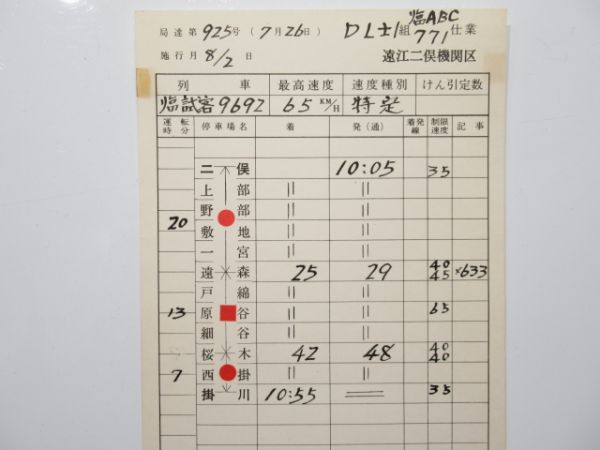 局達第925号(7月26日) DL士1組 臨ABC 771仕業
施行月 8/2 日 遠江二俣機関区
列車 最高速度 速度種別 けん引定数
臨試客9692 65KM/H 特定
運転時分 停車場名 着 発(通) 着発線 制限速度 記事
二俣 10:05 35
上部 〃 〃
20 野部 〃 〃
敷地 〃 〃
一宮 〃 〃
遠森 25 29 40 45 ×633
戸綿 〃 〃
13 原谷 〃 〃 65
細谷 〃 〃
桜木 42 48 40 40
7 西掛 〃 〃
掛川 10:55 35